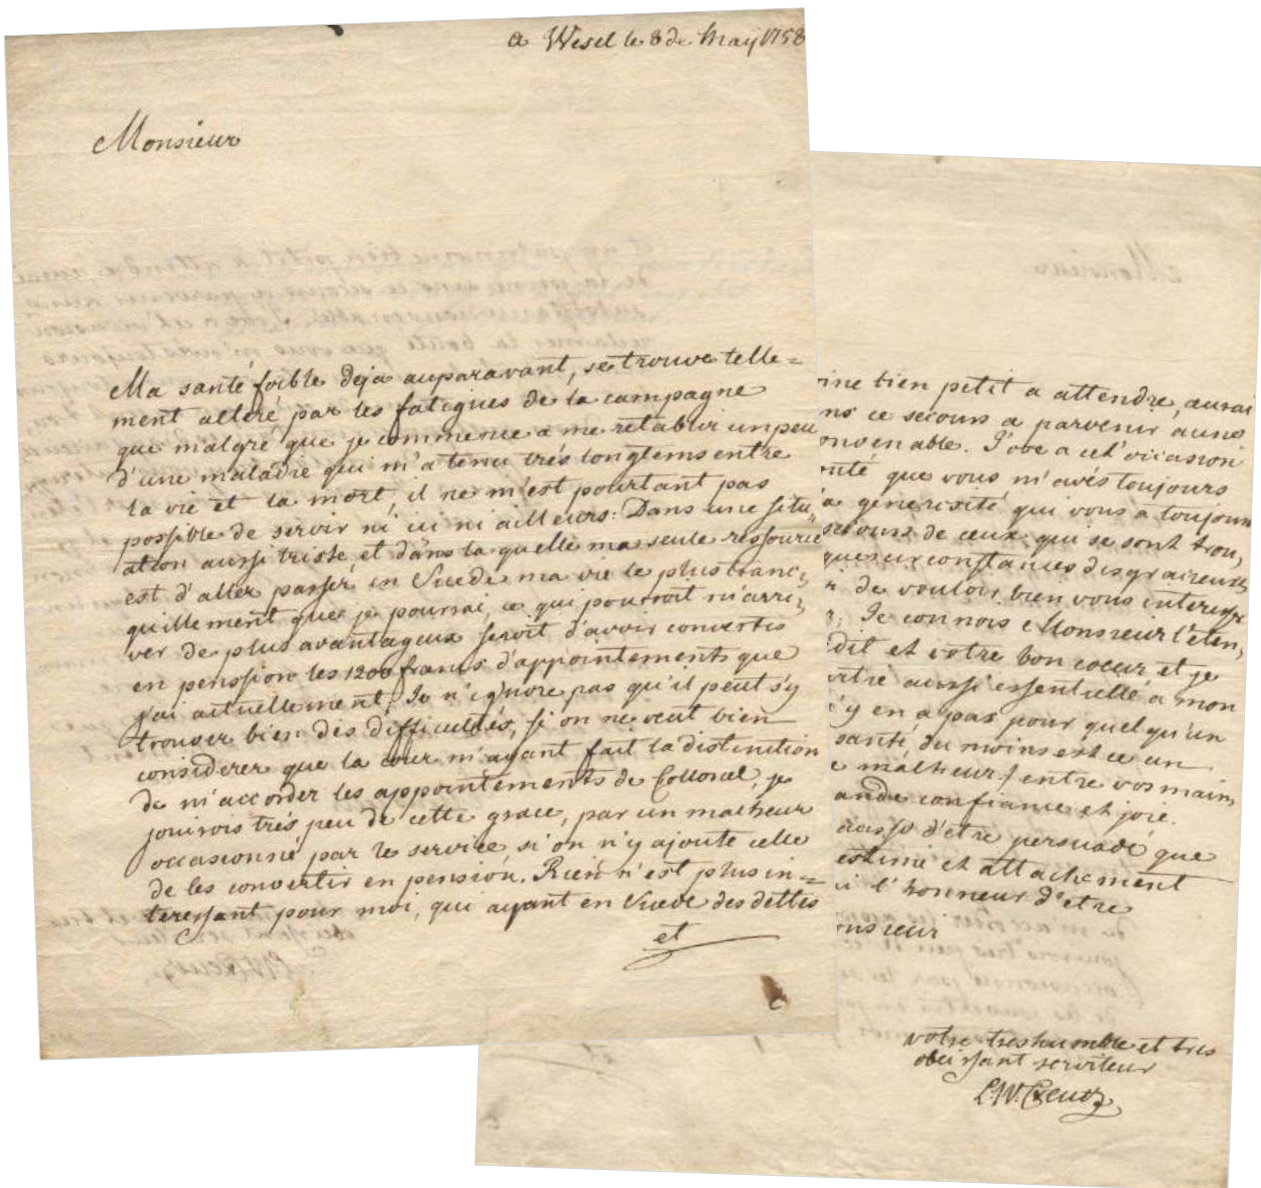 a Wesel le 8 de Maÿ 1758
Monsieur
Ma santé foible deja auparavant, se trouve telle=
ment alteré par les fatigues de la campagne
que malgré que je commence a me retablir un peu
d'une maladie qui m'a tenu trés longtems entre
la vie et la mort, il ne m'est pourtant pas
possible de servir ni ici ni ailleurs: Dans une situ=
ation aussi triste, et dans la quelle ma seule ressource
est d'aller passer en Suede ma vie le plus tranc,
quillement que je pourrai, ce qui pourroit m'arri,
ver de plus avantageux seroit d'avoir convertis
en pension les 1200 francs d'appointements que
j'ai actuellement. Je n'ignore pas qu'il peut s'y
trouver bien des difficultés, si on ne veut bien
considerer que la cour m'ayant fait la distinction
de m'accorder les appointements de Collonel, je
jouirois trés peu de cette grace, par un malheur
occasionné par le service, si on n'y ajoute celle
de les convertir en pension. Rien n'est plus in=
teressant pour moi, qui ayant en Suede des dettes
et
ine bien petit a attendre, aurai
ns ce secours a parvenir a une
onvenable. J'ose a cet occasion
onté que vous m'avés toujours
a générosité qui vous a toujours
secours de ceux qui se sont trou,
ques circonstances disgracieuses
r de vouloir bien vous interesser
Je connois Monsieur l'éten,
dit et votre bon coeur, et je
vitié aussi essentielle a mon
y en a pas pour quelqu'un
santé, du moins est ce un
e malheur / entre vos mains
ande confiance et joie.
d'etre persuadé que
estime et attachement
i l'honneur d'etre
onsieur
votre tres humble et tres
obeissant serviteur
C.W. Creutz